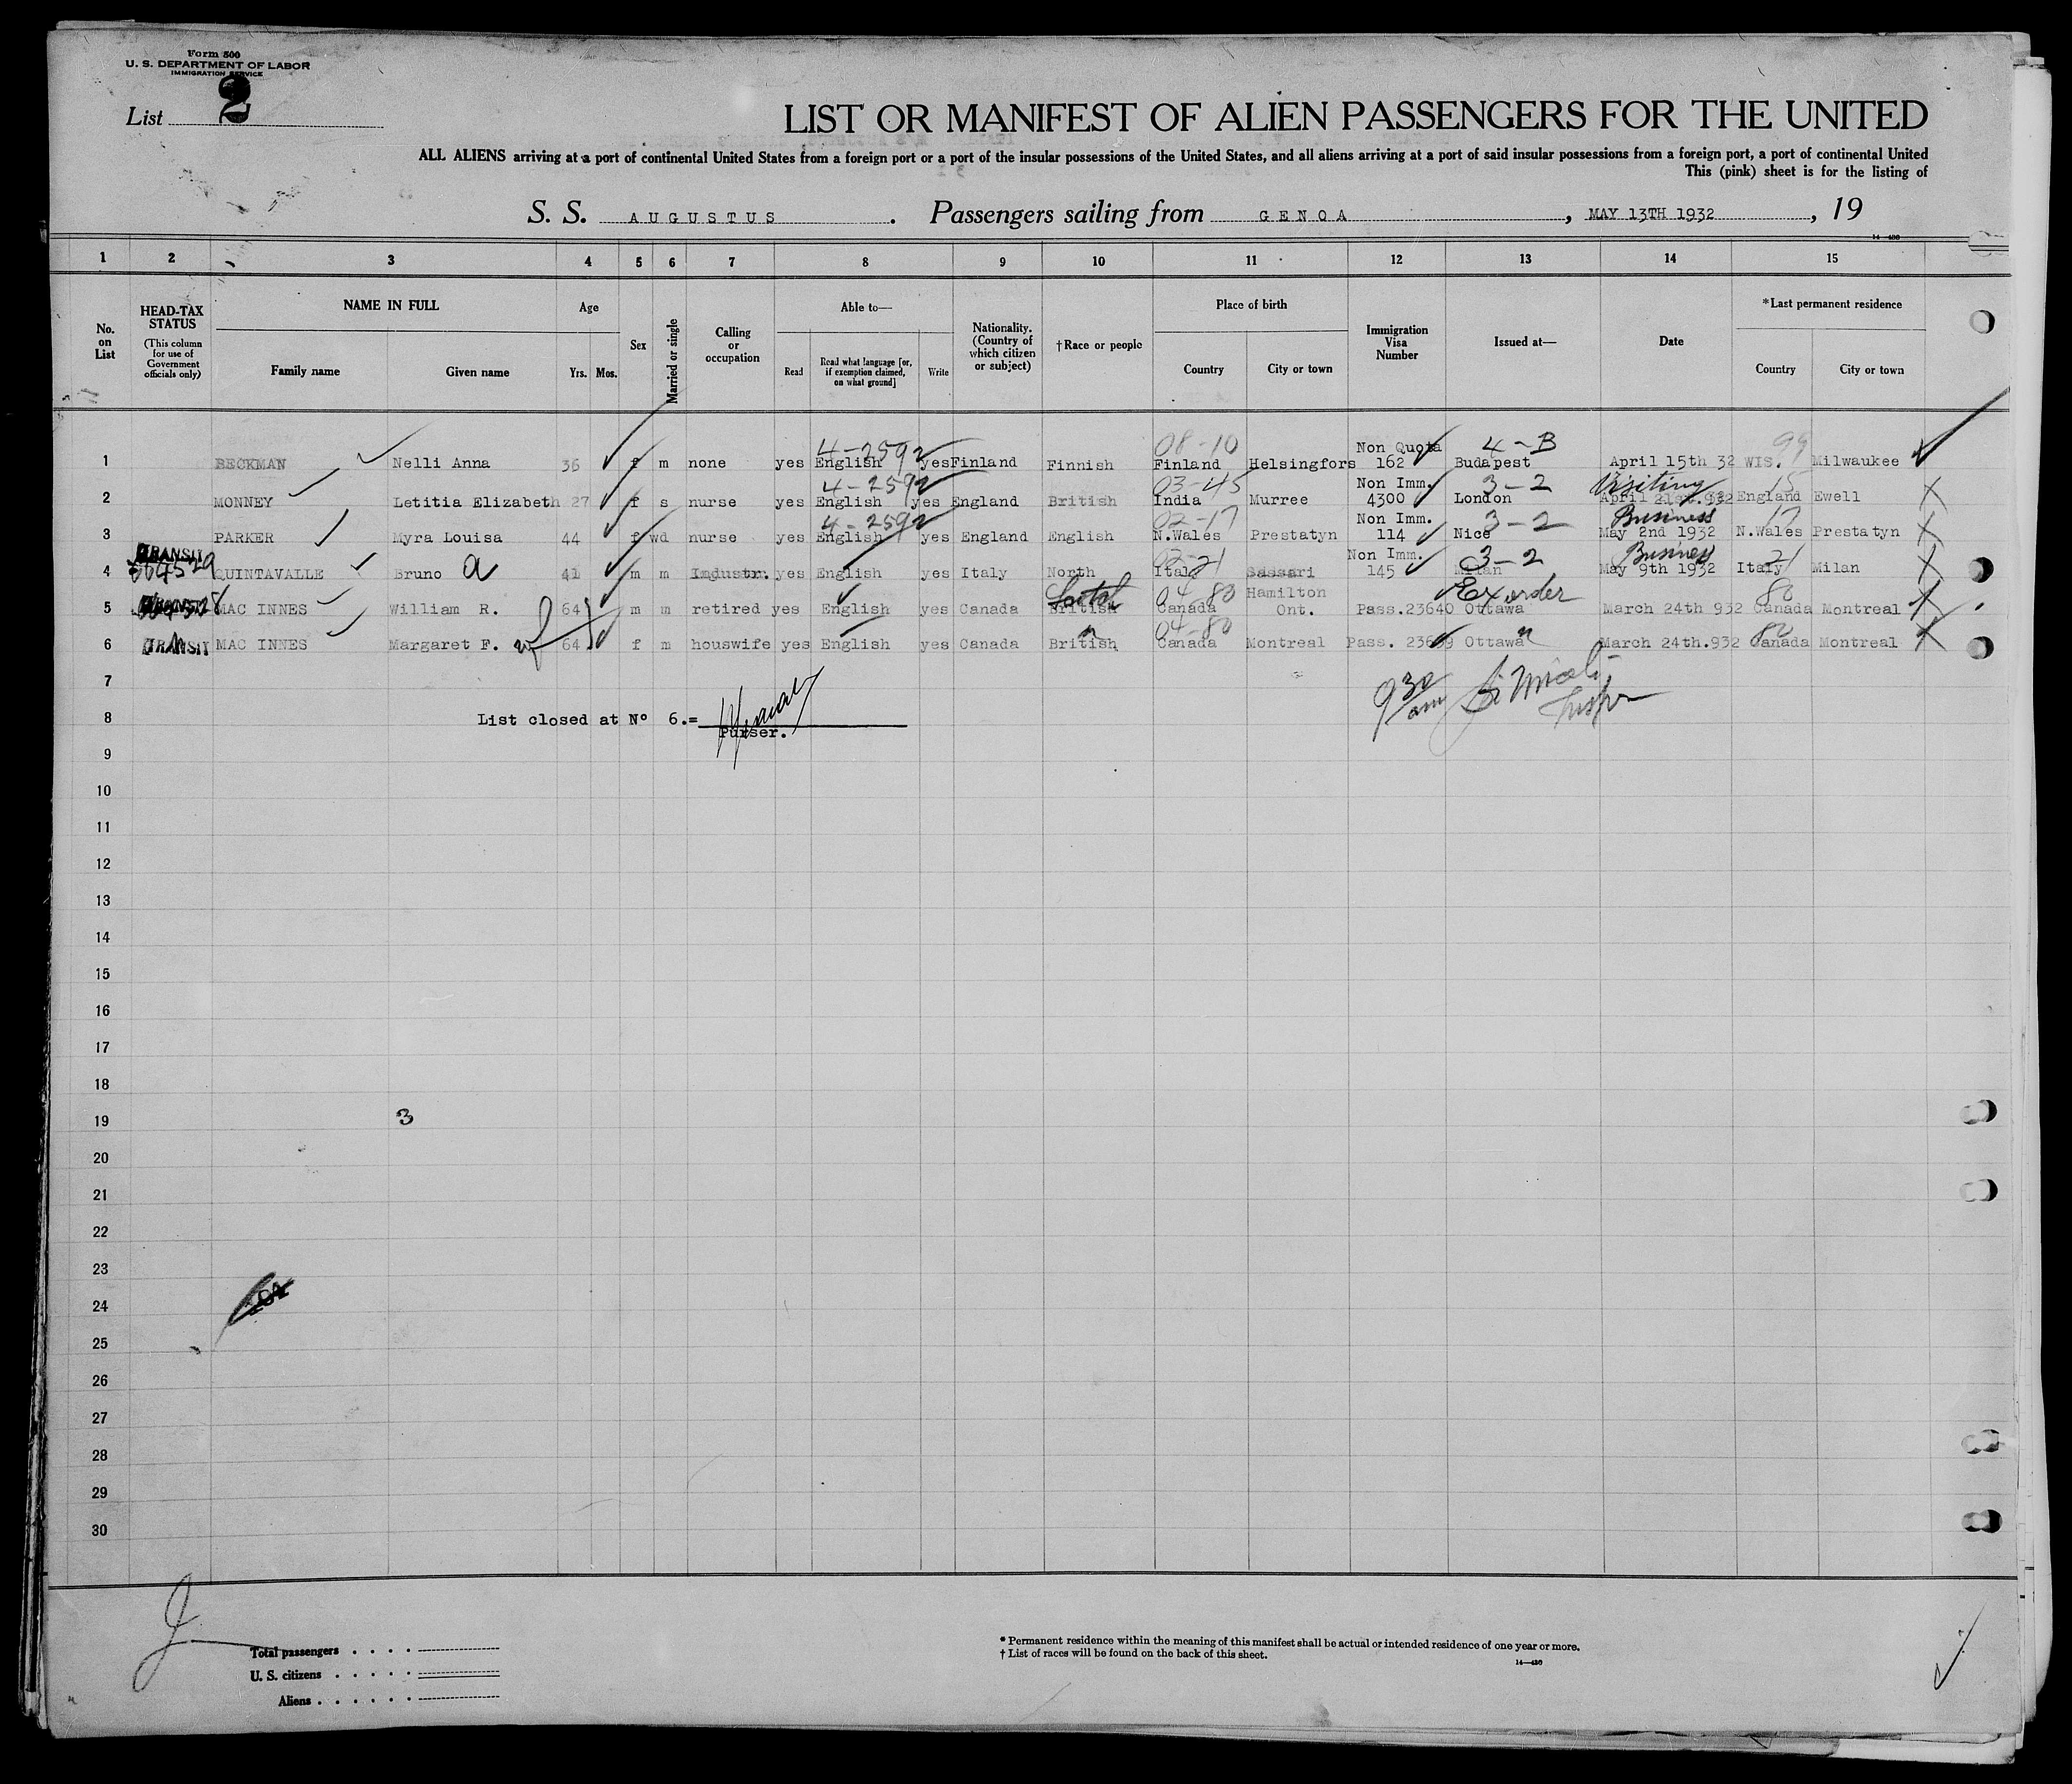 Form 500
U. S. DEPARTMENT OF LABOR
IMMIGRATION SERVICE
List 2
LIST OR MANIFEST OF ALIEN PASSENGERS FOR THE UNITED
ALL ALIENS arriving at a port of continental United States from a foreign port or a port of the insular possessions of the United States, and all aliens arriving at a port of said insular possessions from a foreign port, a port of continental United
This (pink) sheet is for the listing of
S. S. AUGUSTUS. Passengers sailing from GENOA, MAY 13TH 1932, 19
14—436
1 2 3 4 5 6 7 8 9 10 11 12 13 14 15
No. on List
HEAD-TAX STATUS (This column for use of Government officials only)
NAME IN FULL
Family name Given name
Age
Yrs. Mos.
Sex
Married or single
Calling or occupation
Able to—
Read Read what language [or, if exemption claimed, on what ground] Write
Nationality. (Country of which citizen or subject)
†Race or people
Place of birth
Country City or town
Immigration Visa Number
Issued at—
Date
*Last permanent residence
Country City or town
4-2592 08-10 Non Quota 4-B 99
1 BECKMAN Nelli Anna 36 f m none yes English yes Finland Finnish Finland Helsingfors 162 Budapest April 15th 32 WIS. Milwaukee
4-2592 03-45 Non Imm. 3-2 Visiting 15
2 MONNEY Letitia Elizabeth 27 f s nurse yes English yes England British India Murree 4300 London April 21st. 932 England Ewell X
4-2592 02-17 Non Imm. 3-2 Business 17
3 PARKER Myra Louisa 44 f wd nurse yes English yes England English N.Wales Prestatyn 114 Nice May 2nd 1932 N.Wales Prestatyn X
TRANSIT Non Imm. 3-2 Business 21
4 QUINTAVALLE Bruno a 41 m m Industr. yes English yes Italy North Italy Sassari 145 Milan May 9th 1932 Italy Milan X
Scotch 04-80 Hamilton Ex order 80
5 MAC INNES William R. 64 m m retired yes English yes Canada British Canada Ont. Pass.23640 Ottawa March 24th 932 Canada Montreal X
04-80 80
6 TRANSIT MAC INNES Margaret F. wf 64 f m houswife yes English yes Canada British Canada Montreal Pass. 23639 Ottawa March 24th.932 Canada Montreal X
7
9 30 am
8 List closed at Nº 6.=
Purser.
9
10
11
12
13
14
15
16
17
18
19 3
20
21
22
23
24
25
26
27
28
29
30
Total passengers
U. S. citizens
Aliens
* Permanent residence within the meaning of this manifest shall be actual or intended residence of one year or more.
† List of races will be found on the back of this sheet.
14—436